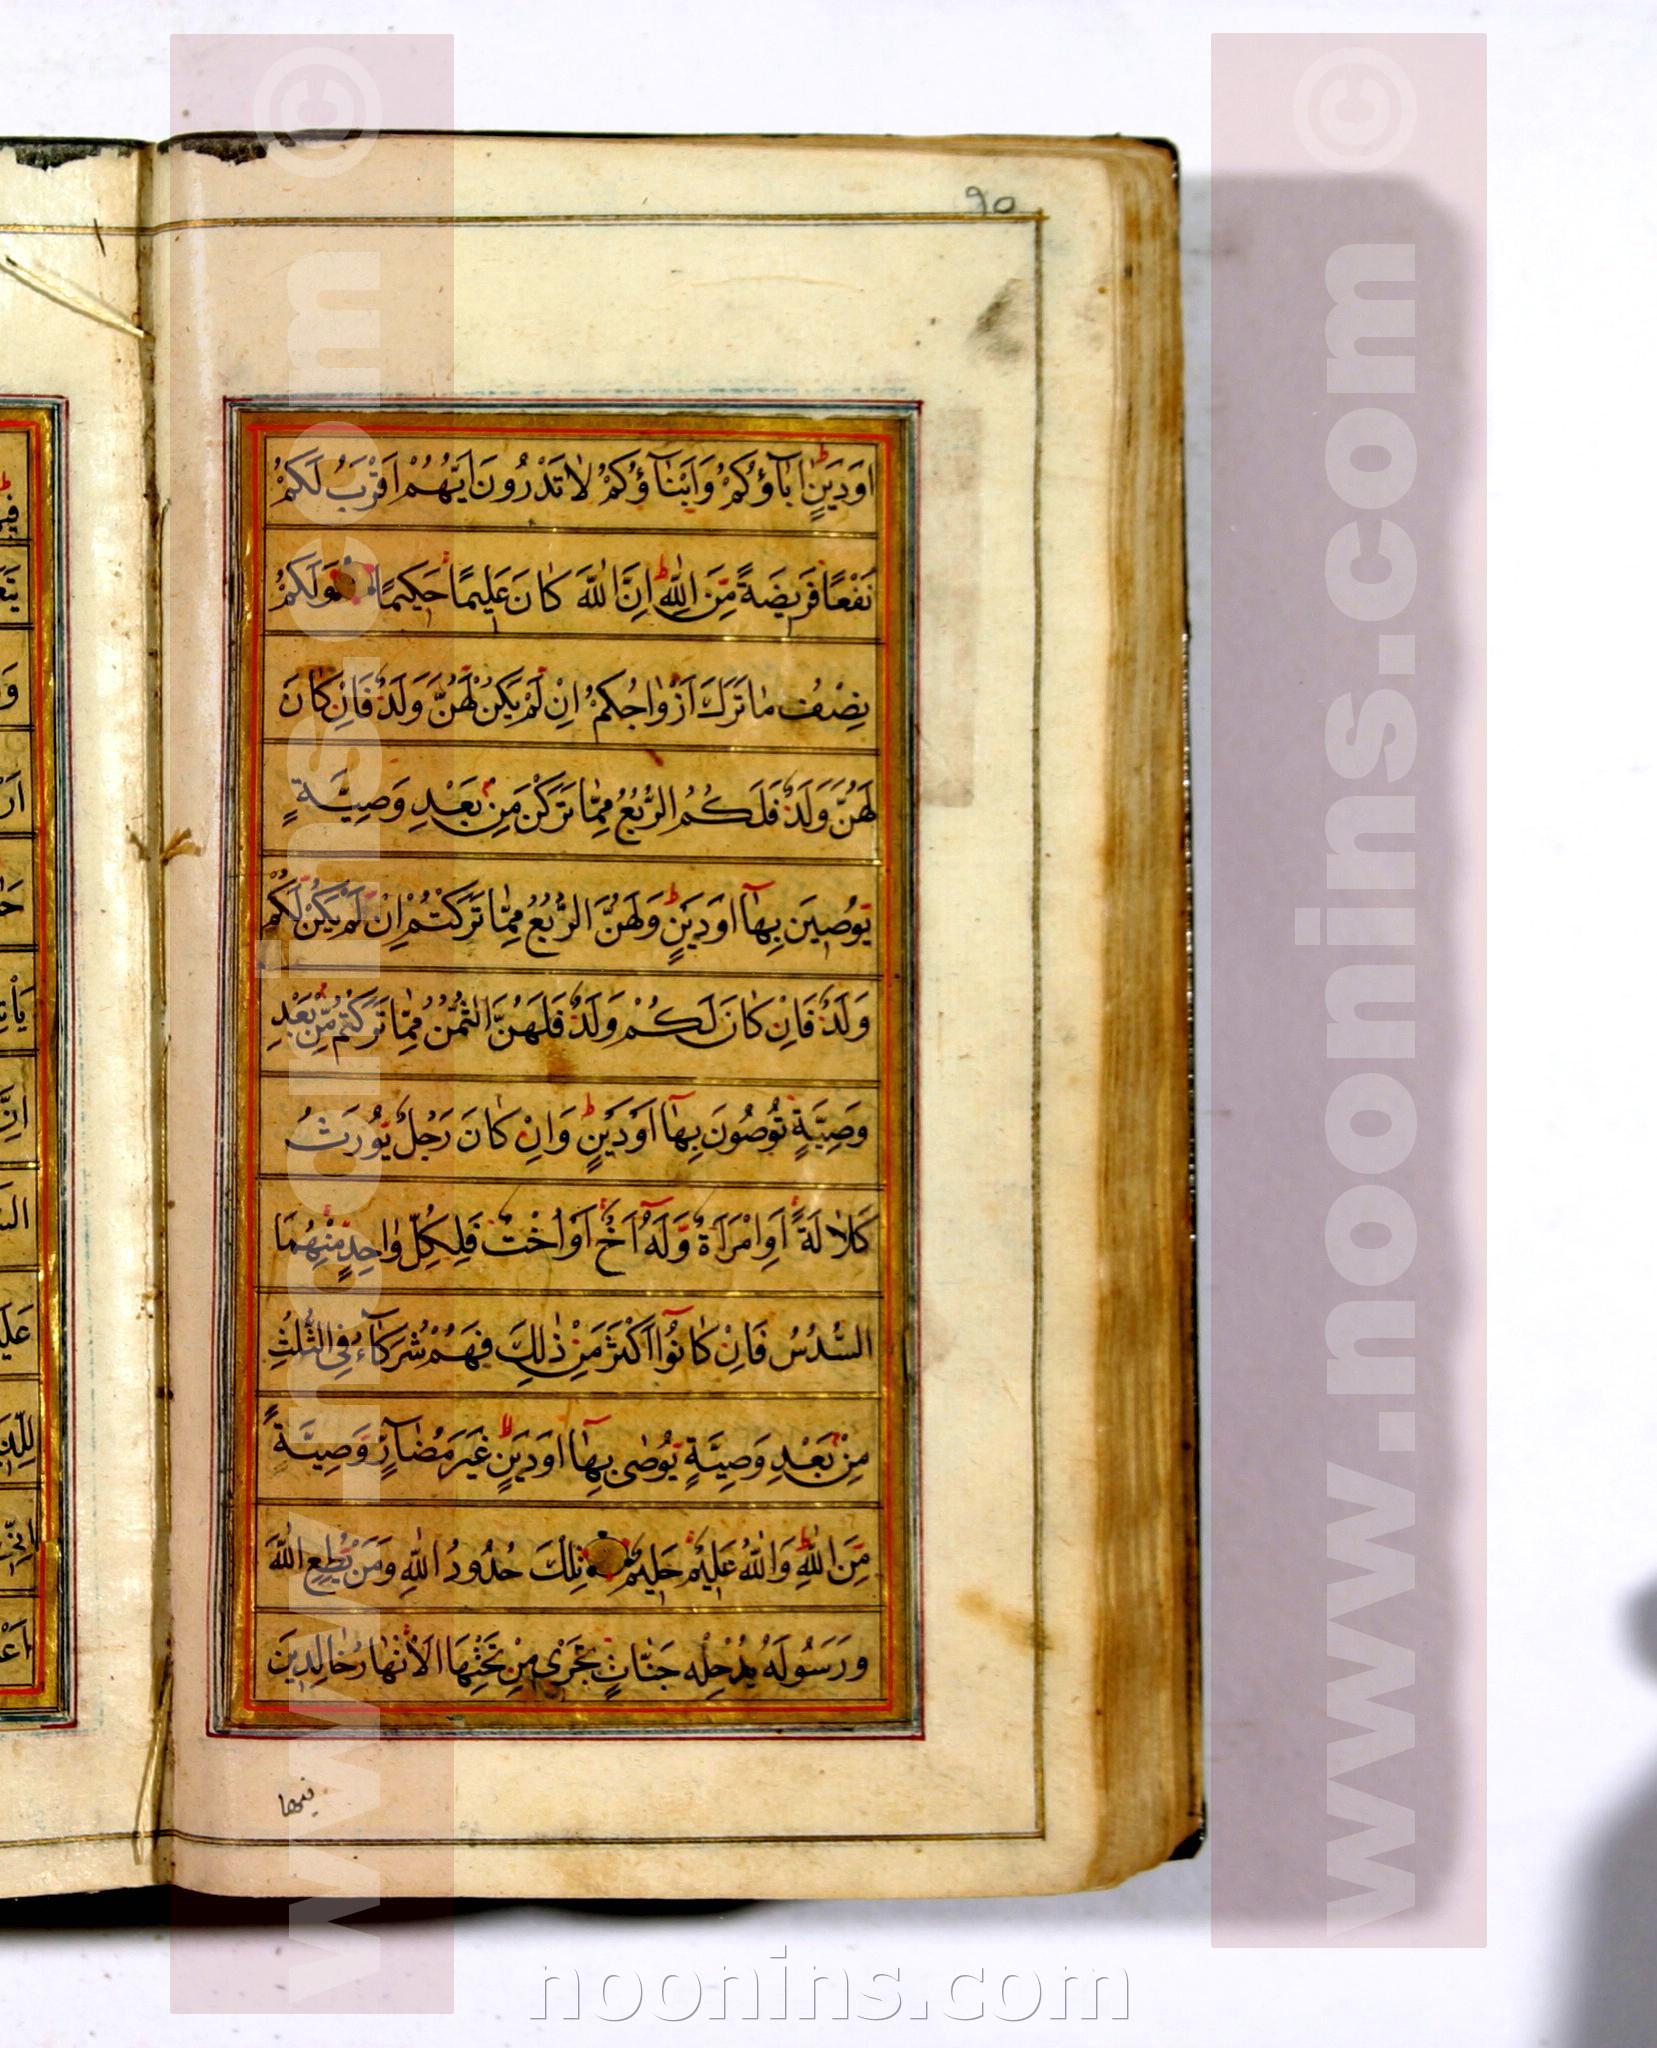 ٩٥
اَوْدَيْنٍ اٰبٰآؤُكُمْ وَاَبْنٰآؤُكُمْ لٰاتَدْرُونَ اَيُّهُمْ اَقْرَبُ لَكُمْ
نَفْعًا فَرِيضَةً مِّنَ اللّٰهِ اِنَّ اللّٰهَ كٰانَ عَلِيمًا حَكِيمًا وَلَكُمْ
نِصْفُ مٰاتَرَكَ اَزْوٰاجُكُمْ اِنْ لَمْ يَكُنْ لَهُنَّ وَلَدٌ فَاِنْ كٰانَ
لَهُنَّ وَلَدٌ فَلَكُمُ الرُّبُعُ مِمّٰا تَرَكْنَ مِنْ بَعْدِ وَصِيَّةٍ
يُوصِينَ بِهٰآ اَوْدَيْنٍ وَلَهُنَّ الرُّبُعُ مِمّٰا تَرَكْتُمْ اِنْ لَمْ يَكُنْ لَكُمْ
وَلَدٌ فَاِنْ كٰانَ لَكُمْ وَلَدٌ فَلَهُنَّ الثُّمُنُ مِمّٰا تَرَكْتُمْ مِّنْ بَعْدِ
وَصِيَّةٍ تُوصُونَ بِهٰآ اَوْدَيْنٍ وَاِنْ كٰانَ رَجُلٌ يُورَثُ
كَلاٰلَةً اَوِ امْرَاَةٌ وَّلَهُ اَخٌ اَوْ اُخْتٌ فَلِكُلِّ وٰاحِدٍ مِّنْهُمَا
السُّدُسُ فَاِنْ كٰانُوٓا اَكْثَرَ مِنْ ذٰلِكَ فَهُمْ شُرَكٰآءُ فِى الثُّلُثِ
مِنْ بَعْدِ وَصِيَّةٍ يُوصٰى بِهٰآ اَوْدَيْنٍ غَيْرَ مُضٰآرٍّ وَصِيَّةً
مِّنَ اللّٰهِ وَاللّٰهُ عَلِيمٌ حَلِيمٌ تِلْكَ حُدُودُ اللّٰهِ وَمَنْ يُطِعِ اللّٰهَ
وَرَسُولَهُ يُدْخِلْهُ جَنّٰاتٍ تَجْرِى مِنْ تَحْتِهَا الْاَنْهٰارُ خٰالِدِينَ
فيها
www.noonins.com ©
www.noonins.com ©
noonins.com